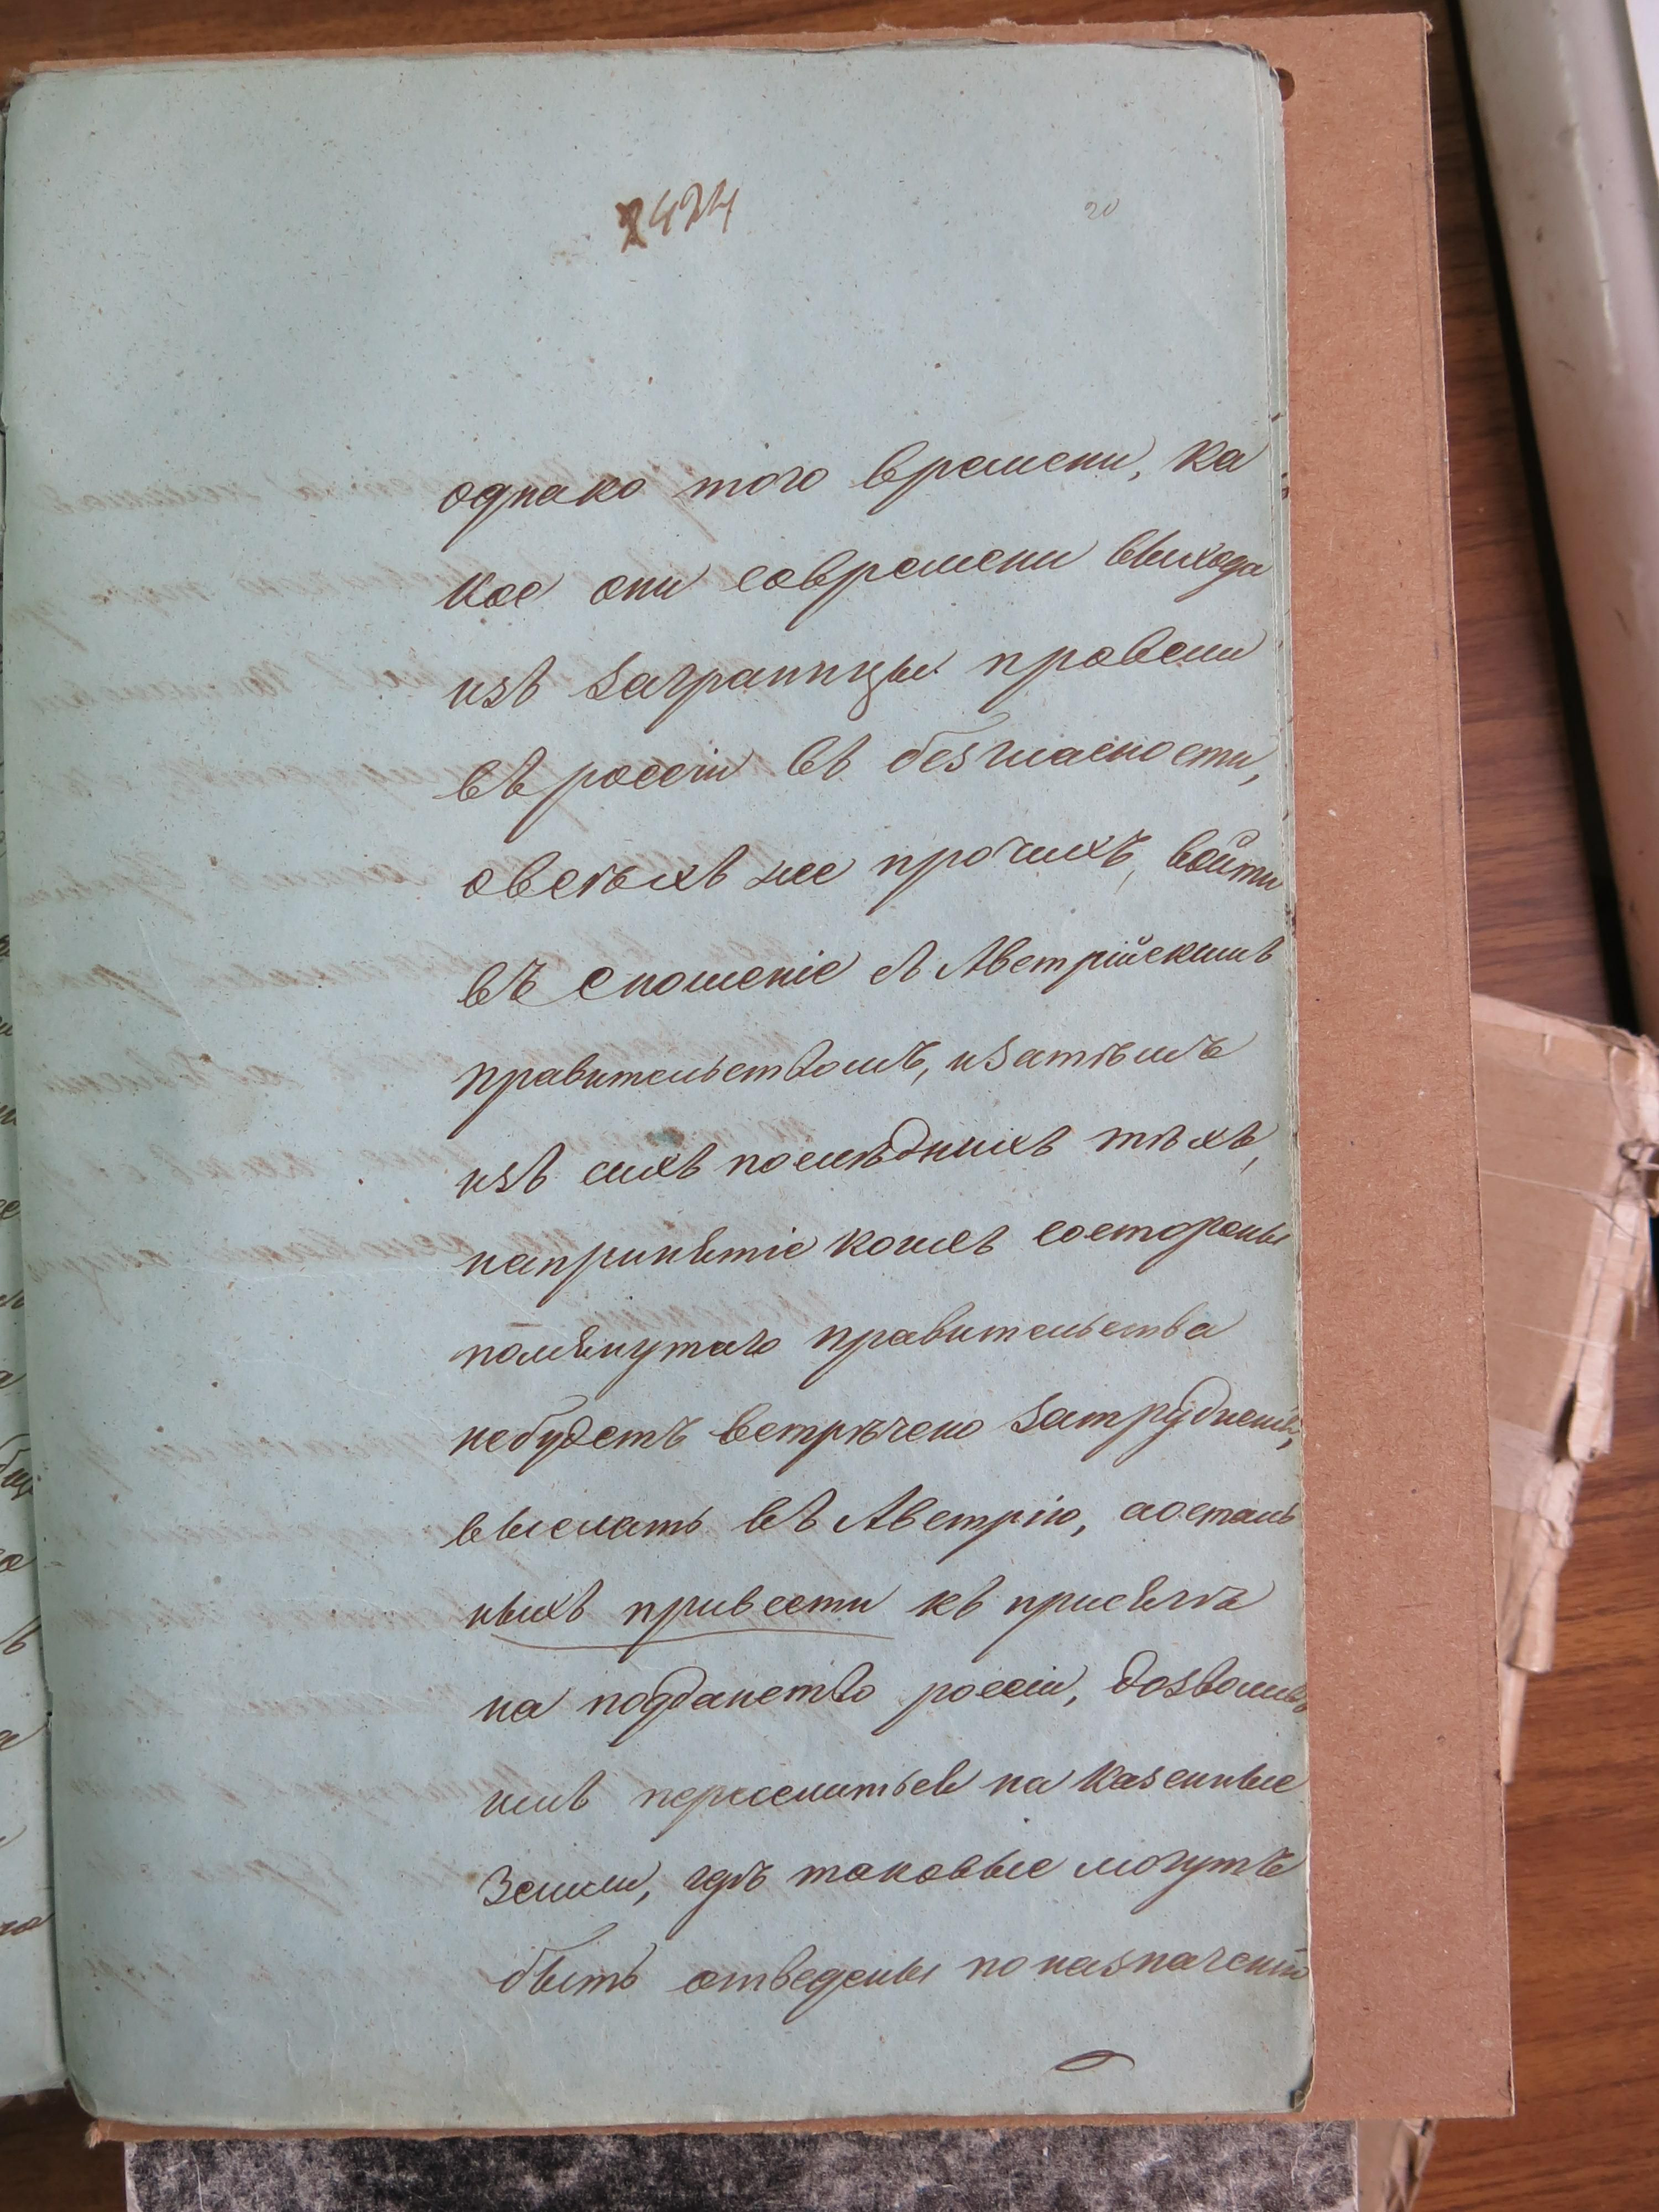 2424
20
однако того времени, ка
кое они современи выхода
изъ заграницы провели
въ россіи въ безгласности,
овсѣхъ же прочихъ, войти
въ сношеніе съ Австрійскимъ
правительствомъ, изатѣмъ
изъ сихъ послѣднихъ тѣхъ,
напринятіе коихъ состороны
помянутаго правительства
небудетъ встрѣчено затрудненій,
выслать въ Австрію, аосталь
ныхъ привести къ присягѣ
на подданство россіи, дозволивъ
имъ переселиться на казенные
земли, гдѣ таковые могутъ
быть отведены поназначенію